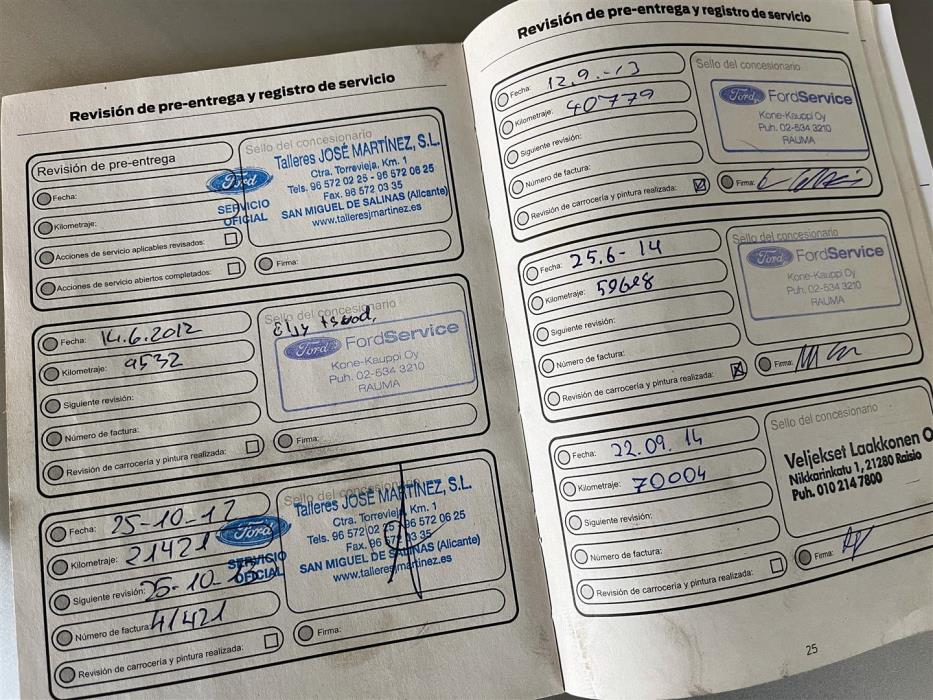 Revisión de pre-entrega y registro de servicio
Revisión de pre-entrega
Fecha:
Kilometraje:
Acciones de servicio aplicables revisados:
Acciones de servicio abiertos completados:
Sello del concesionario
Ford
SERVICIO
OFICIAL
Talleres JOSÉ MARTÍNEZ, S.L.
Ctra. Torrevieja, Km. 1
Tels. 96 572 02 25 - 96 572 06 25
Fax. 96 572 03 35
SAN MIGUEL DE SALINAS (Alicante)
www.talleresjmartinez.es
Firma:
Fecha: 14.6.2012
Kilometraje: 9532
Siguiente revisión:
Número de factura:
Revisión de carrocería y pintura realizada:
Sello del concesionario
Ford FordService
Kone-Kauppi Oy
Puh. 02-534 3210
RAUMA
Firma:
Fecha: 25-10-12
Kilometraje: 21421
Siguiente revisión: 25-10-
Número de factura: 41421
Revisión de carrocería y pintura realizada:
Sello del concesionario
Ford
SERVICIO
OFICIAL
Talleres JOSÉ MARTÍNEZ, S.L.
Ctra. Torrevieja, Km. 1
Tels. 96 572 02 25 - 96 572 06 25
Fax. 96 572 03 35
SAN MIGUEL DE SALINAS (Alicante)
www.talleresjmartinez.es
Firma:
Revisión de pre-entrega y registro de servicio
Fecha: 12.9.-13
Kilometraje: 40779
Siguiente revisión:
Número de factura:
Revisión de carrocería y pintura realizada:
Sello del concesionario
Ford FordService
Kone-Kauppi Oy
Puh. 02-534 3210
RAUMA
Firma:
Fecha: 25.6-14
Kilometraje: 59668
Siguiente revisión:
Número de factura:
Revisión de carrocería y pintura realizada:
Sello del concesionario
Ford FordService
Kone-Kauppi Oy
Puh. 02-534 3210
RAUMA
Firma:
Fecha: 22.09.14
Kilometraje: 70004
Siguiente revisión:
Número de factura:
Revisión de carrocería y pintura realizada:
Sello del concesionario
Veljekset Laakkonen O
Nikkarinkatu 1, 21280 Raisio
Puh. 010 214 7800
Firma:
25